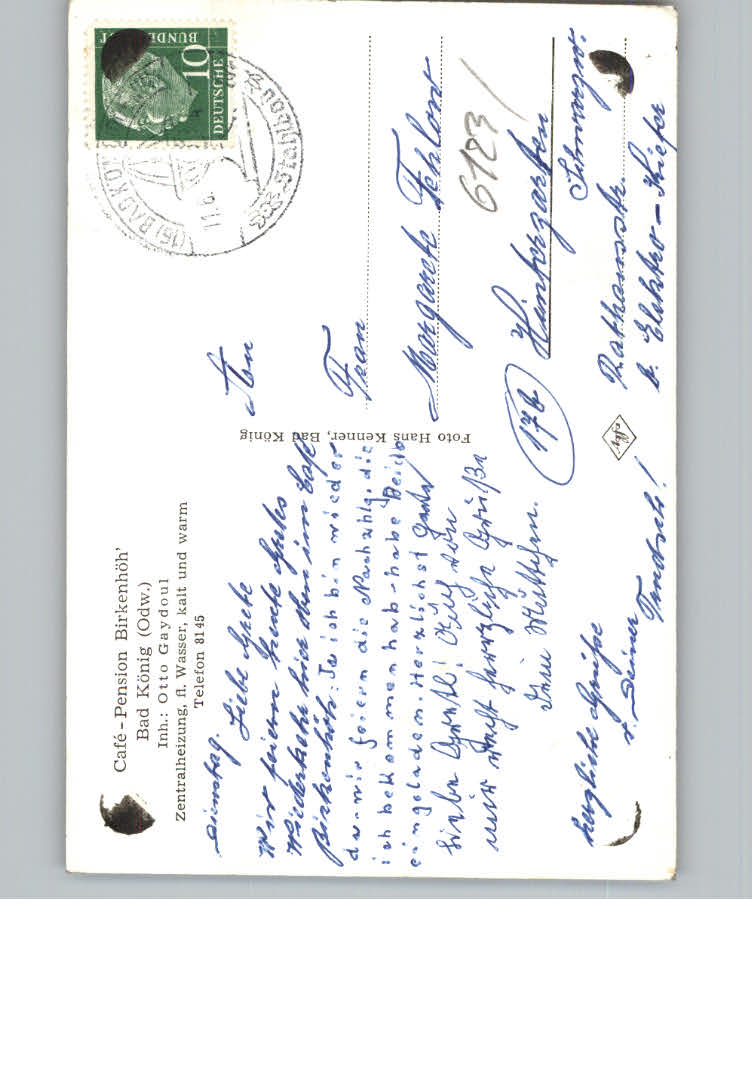 Café - Pension Birkenhöh'
Bad König (Odw.)
Inh.: Otto Gaydoul
Zentralheizung, fl. Wasser, kalt und warm
Telefon 8145
Dienstag.
Liebe Grete
Wir feiern heute Gutes
Wiedersehn hier oben im Café
Birkenhöh. Ja ich bin wieder
da. wir feiern die Nachzahlg. die
ich bekommen hab - habe Beide
eingeladen. Herzlichst
Liebe
herzliche Grüße
Müttchen.
Herzliche Grüße
v. Deiner
Foto Hans Kenner, Bad König
An
Frau
Margarete
6123
(17b) Hinterzarten
Schwarzw.
Rathausstr.
b. Elektro - Kiefer
DEUTSCHE
BUNDESPOST
10
(16) BAD KÖNIG
11.6.
Das Stahlbad